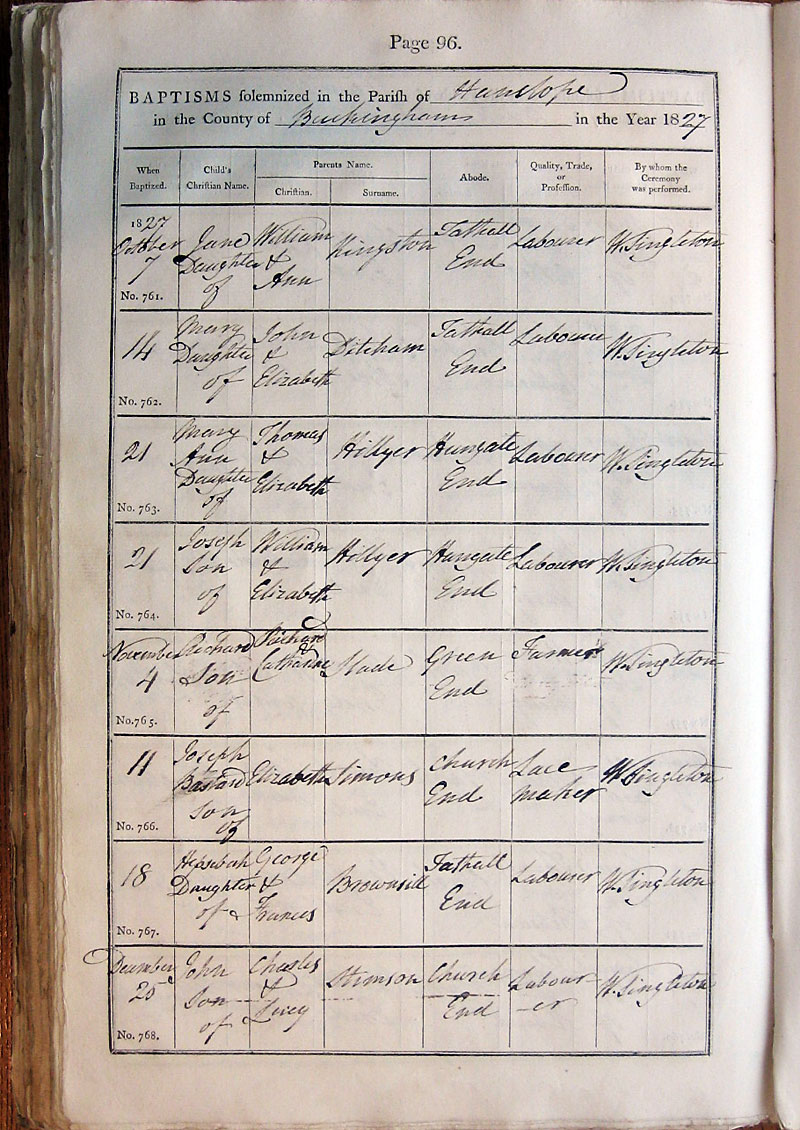 Page 96.
BAPTISMS solemnized in the Parish of Hanslope
in the County of Buckingham in the Year 1827
When Baptized. Child's Christian Name. Parents Name. Abode. Quality, Trade, or Profession. By whom the Ceremony was performed.
Christian. Surname.
1827
October
7
No. 761.
Jane
Daughter
of
William
&
Ann
Kingston
Tathall
End
Labourer
W. Singleton
14
No. 762.
Mary
Daughter
of
John
&
Elizabeth
Ditcham
Tathall
End
Labourer
W. Singleton
21
No. 763.
Mary
Ann
Daughter
of
Thomas
&
Elizabeth
Hillyer
Hungate
End
Labourer
W. Singleton
21
No. 764.
Joseph
Son
of
William
&
Elizabeth
Hillyer
Hungate
End
Labourer
W. Singleton
November
4
No. 765.
Richard
Son
of
Richard
&
Catharine
Green
End
Farmer
W. Singleton
11
No. 766.
Joseph
Bastard
Son
of
Elizabeth
Simons
Church
End
Lace
Maker
W. Singleton
18
No. 767.
Daughter
of
George
&
Frances
Brownsill
Tathall
End
Labourer
W. Singleton
December
25
No. 768.
John
Son
of
Charles
&
Stimson
Church
End
Labour
-er
W. Singleton